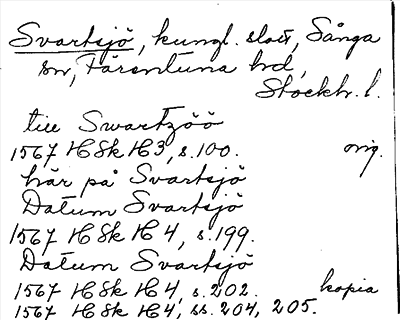 Svartsjö, kungl. slott, Sånga
sn, Färentuna hd,
Stockh. l.
till Swartzöö
1567 HSk H3, s.100. orig.
här på Svartsjö
Datum Svartsjö
1567 HSk H4, s.199.
Datum Svartsjö
1567 HSk H4, s.202. kopia
1567 HSk H4, ss. 204, 205.